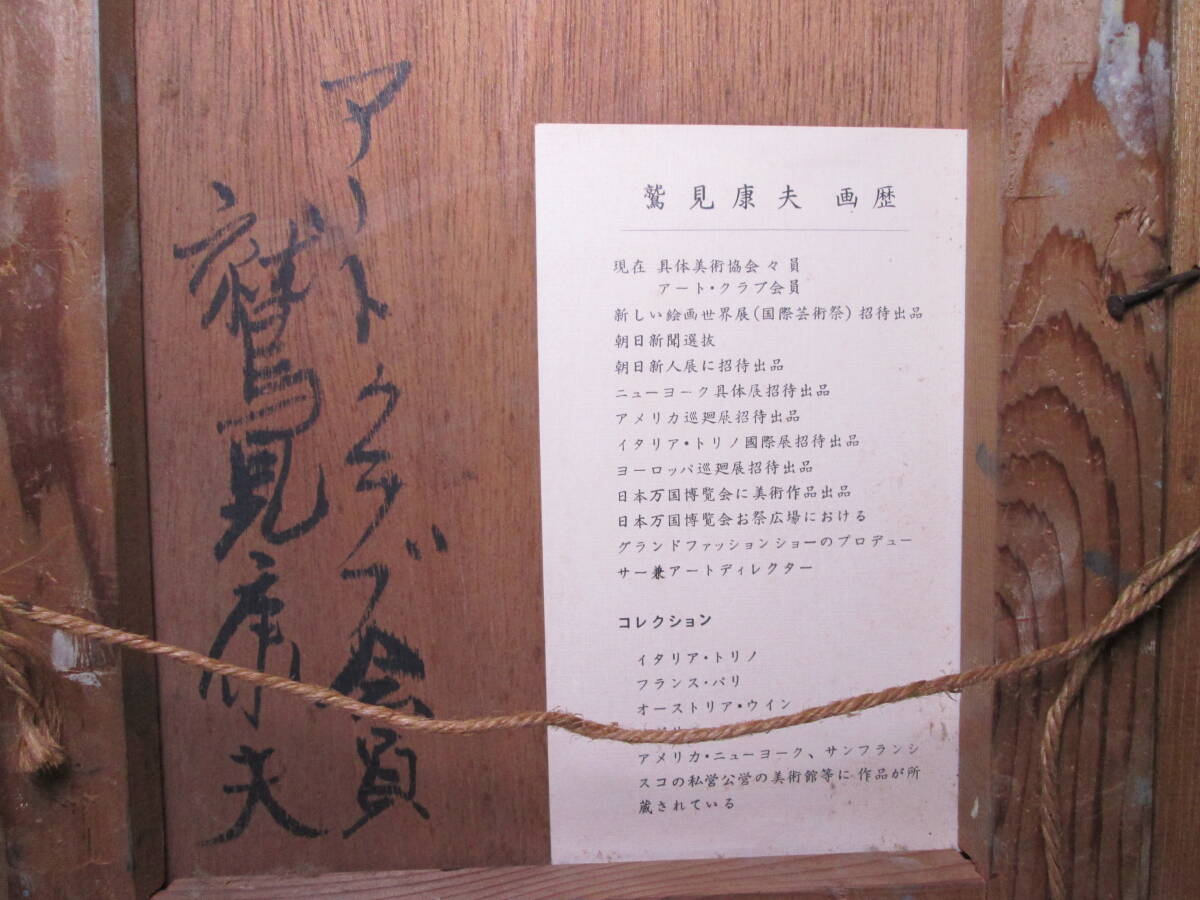 アートクラブ会員
鷲見康夫
鷲見康夫 画歴
現在 具体美術協会々員
アート・クラブ会員
新しい絵画世界展(国際芸術祭) 招待出品
朝日新聞選抜
朝日新人展に招待出品
ニューヨーク具体展招待出品
アメリカ巡廻展招待出品
イタリア・トリノ國際展招待出品
ヨーロッパ巡廻展招待出品
日本万国博覧会に美術作品出品
日本万国博覧会お祭広場における
グランドファッションショーのプロデュー
サー兼アートディレクター
コレクション
イタリア・トリノ
フランス・パリ
オーストリア・ウイン
アメリカ・ニューヨーク、サンフランシ
スコの私営公営の美術館等に作品が所
蔵されている